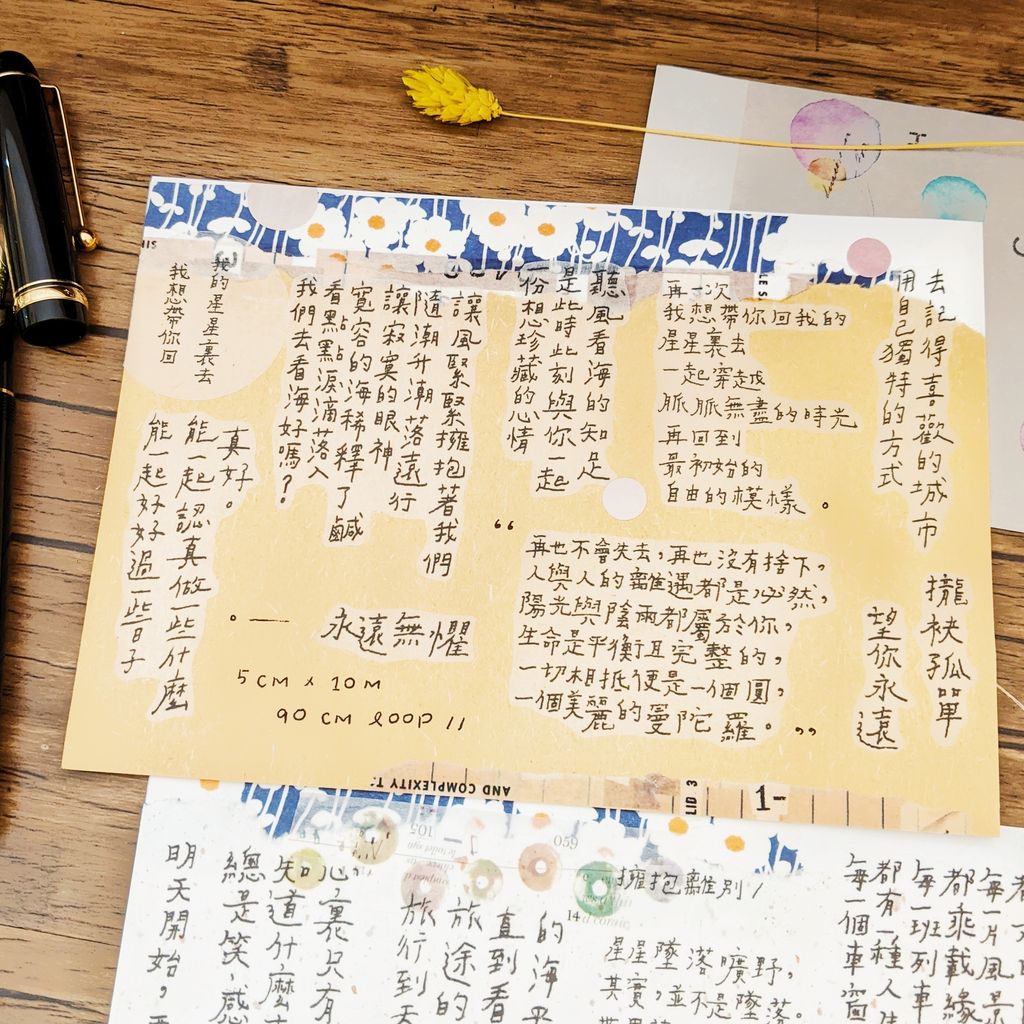 去記得喜歡的城市
用自己獨特的方式
攏袂孤單
望你永遠
再一次
我想帶你回我的
星星裏去
一起穿越
脈脈無盡的時光
再回到
最初始的
自由的模樣。
聽風看海的知足
是此時此刻與你一起
份想珍藏的心情
“
再也不會失去，再也沒有捨下，
人與人的離遇都是必然，
陽光與陰雨都屬於你，
生命是平衡且完整的，
一切相抵便是一個圓，
一個美麗的曼陀羅。”
讓風緊緊擁抱著我們
隨潮升潮落遠行
讓寂寞的眼神
寬容的海稀釋了鹹
看點點淚滴落入
我們去看海好嗎？
永遠無懼
我的星星裏去
我想帶你回
真好。
能一起認真做一些什麼
能一起好好過一些日子
5 CM x 10 M
90 CM LOOP //
AND COMPLEXITY T
LID 3
1-
059
105
14
擁抱離別/
每一片風景
都乘載緣
每一班列車
都有一種人生
每一個車窗
星星墜落曠野，
其實，並不是墜落
的海平
直到看
旅途的
旅行到天
心裏只有
知道什麼
總是笑，感
明天開始，